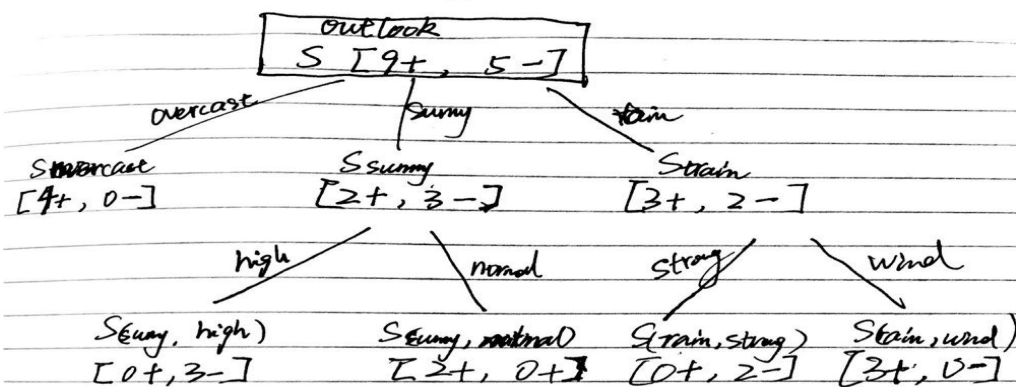 outlook
S [9+, 5-]
overcast sunny rain
Sovercast Ssunny Srain
[4+, 0-] [2+, 3-] [3+, 2-]
high normal strong wind
S(suny, high) S(suny, normal) S(rain, strong) S(rain, wind)
[0+, 3-] [2+, 0+] [0+, 2-] [3+, 0-]